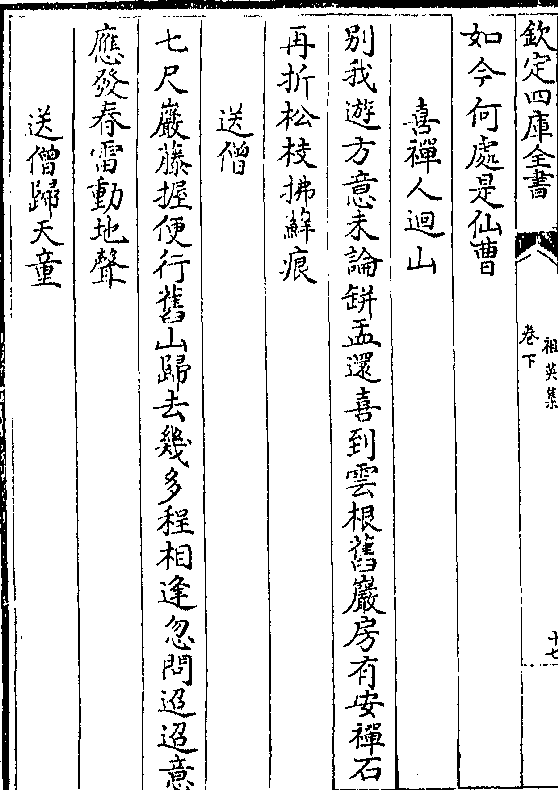 欽定四庫全書
祖英集
卷下
十七
如今何處是仙曹
喜禪人迴山
别我遊方意未論缾盂還喜到雲根舊巖房有安禪石
再折松枝拂蘚痕
送僧
七尺巖藤握便行舊山歸去幾多程相逢忽問迢迢意
應發春雷動地聲
送僧歸天童